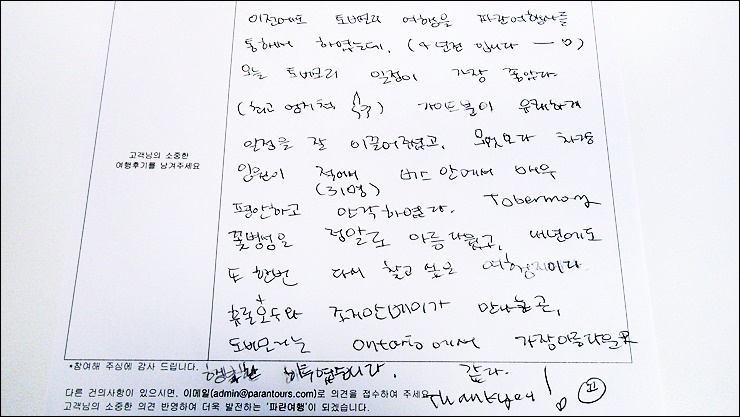 이전에도 토버모리 여행을 파란여행사를
통해서 하였는데, (4년전 입니다 —)
오늘 토버모리 일정이 가장 좋았다
(최고 엄지척) 가이드분이 유쾌하게
고객님의 소중한
여행후기를 남겨주세요
일정을 잘 이끌어주셨고, 무엇보다 차량
인원이 적어서 버스 안에서 매우
(31명)
편안하고 안락하였다. Tobermory
꽃병섬은 정말로 아름다웠고, 내년에도
또 한번 다시 찾고 싶은 여행지이다.
휴론호수와 조지안베이가 만나는 곳,
토버모리는 Ontario에서 가장아름다운곳
*참여해 주심에 감사 드립니다.
행복한 하루였습니다. 같다.
다른 건의사항이 있으시면, 이메일(admin@parantours.com)로 의견을 접수하여 주세요
Thank you!
고객님의 소중한 의견 반영하여 더욱 발전하는 '파란여행'이 되겠습니다.